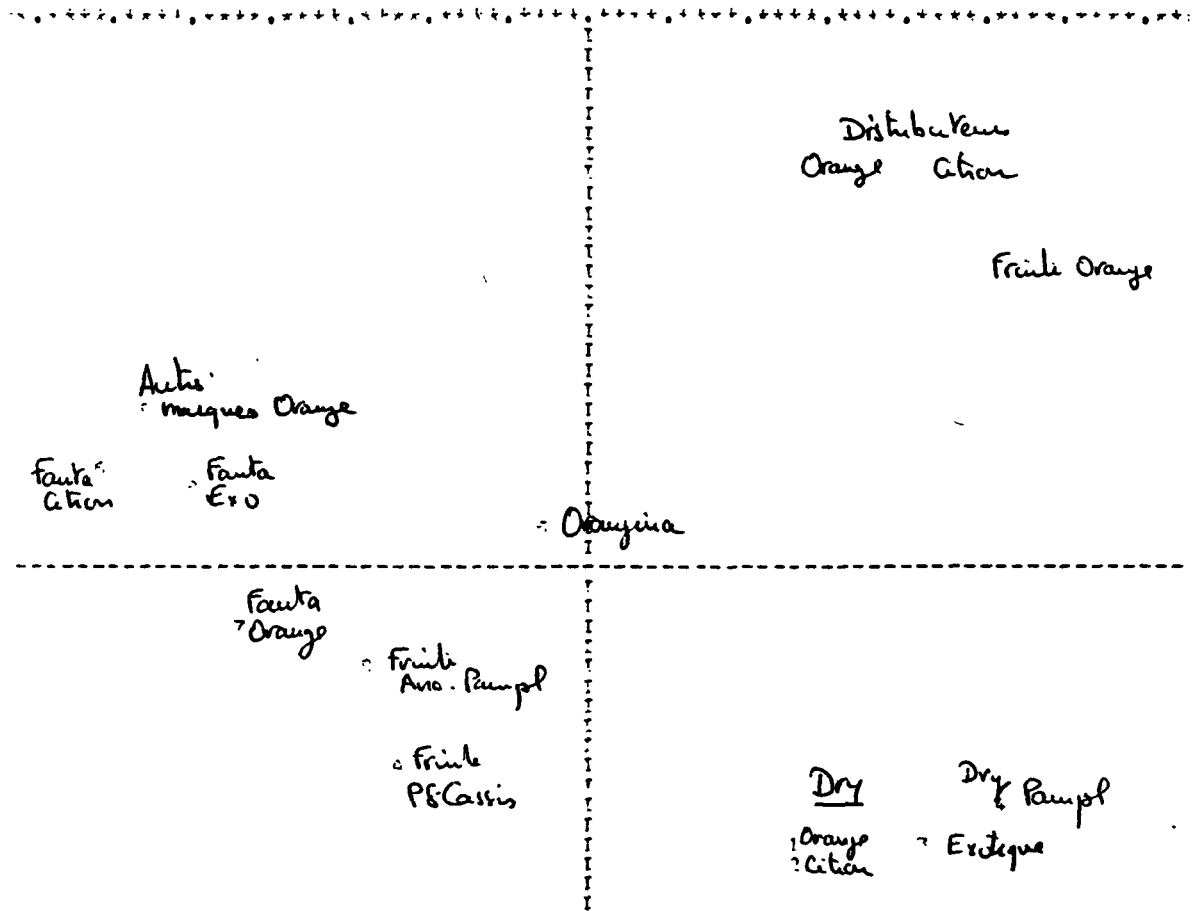 Distributeurs
Orange Citron
Fruité Orange
Autres
marques Orange
Fanta
Citron
Fanta
Exo
Orangina
Fanta
Orange
Fruité
Ana. Pampl
Fruité
Pê-Cassis
Dry
Orange
Citron
Dry
Pampl
Exotique